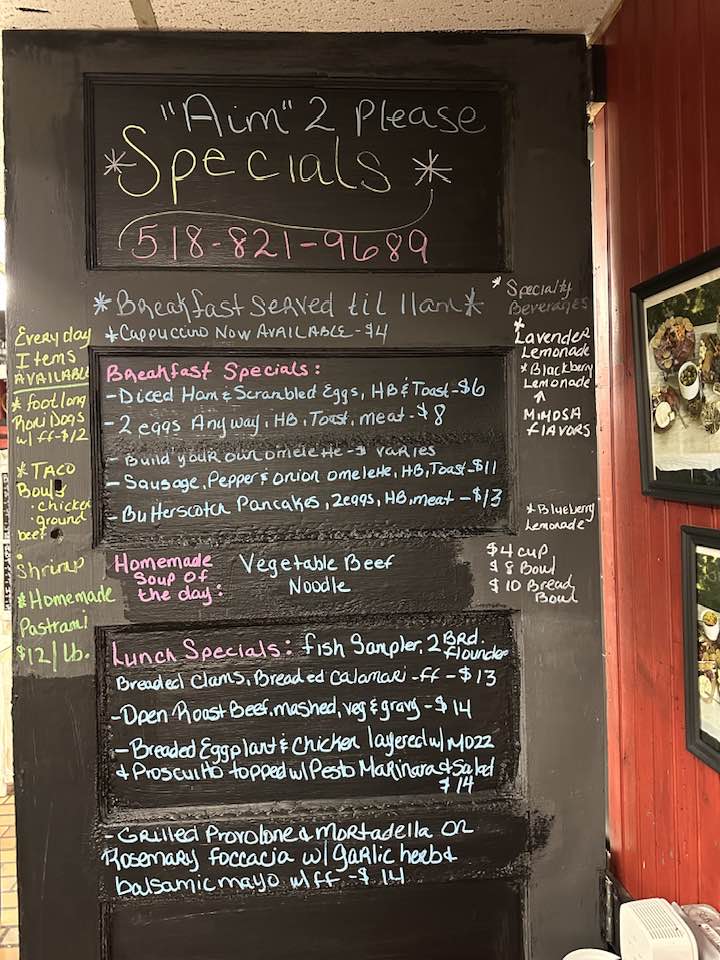 "Aim" 2 Please
*Specials*
518-821-9689
*Breakfast served til 11am*
*Cappuccino Now AVAILABLE - $4
Breakfast Specials:
- Diced Ham & Scrambled Eggs, HB & Toast - $6
- 2 eggs Any way, HB, Toast, meat - $8
- Build your own omelette - $ varies
- Sausage, Pepper & onion omelette, HB, Toast - $11
- Butterscotch Pancakes, 2eggs, HB, meat - $13
Homemade
Soup of
the day:
Vegetable Beef
Noodle
$4 cup
$8 Bowl
$10 Bread
Bowl
Lunch Specials: fish Sampler, 2 Brd.
flounder
Breaded Clams, Breaded Calamari - ff - $13
- Open Roast Beef, mashed, veg & gravy - $14
- Breaded Eggplant & Chicken layered w/ Mozz
& Proscuitto topped w/ Pesto Marinara & Salad
$14
- Grilled Provolone & Mortadella on
Rosemary foccacia w/ garlic herb &
balsamic mayo w/ ff - $14
Everyday
Items
AVAILABLE
* footlong
Dogs
w/ ff - $12
* TACO
Bowls
· chicken
· ground
beef
· Shrimp
* Homemade
Pastrami
$12/lb.
* Specialty
Beverages
* Lavender
Lemonade
* Blackberry
Lemonade
↑
Mimosa
flavors
* Blueberry
Lemonade